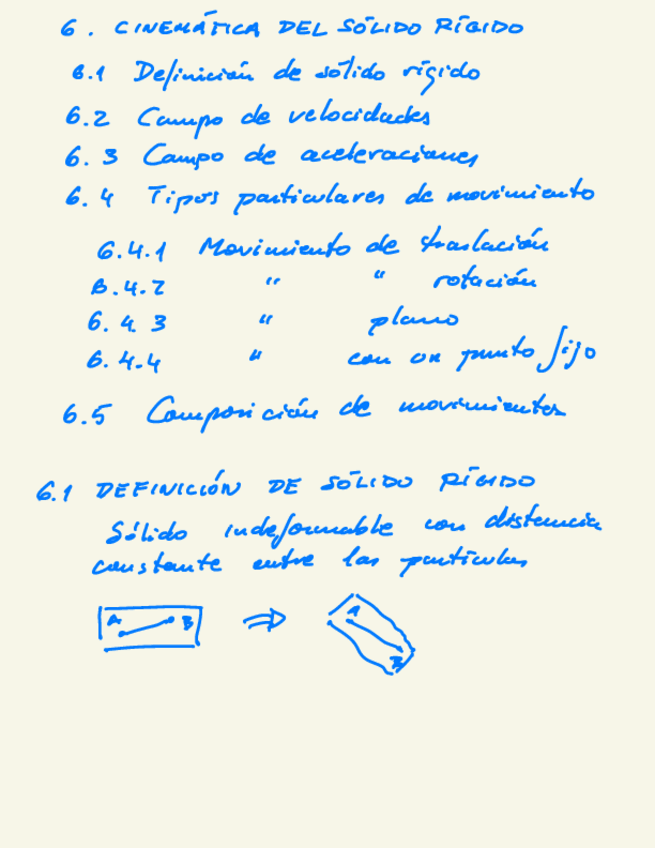 6. CINEMÁTICA DEL SÓLIDO RÍGIDO
6.1 Definición de sólido rígido
6.2 Campo de velocidades
6.3 Campo de aceleraciones
6.4 Tipos particulares de movimiento
6.4.1 Movimiento de traslación
6.4.2 " " rotación
6.4.3 " plano
6.4.4 " con un punto fijo
6.5 Composición de movimientos
6.1 DEFINICIÓN DE SÓLIDO RÍGIDO
Sólido indeformable con distancia
constante entre las partículas
A B ⇒ A B